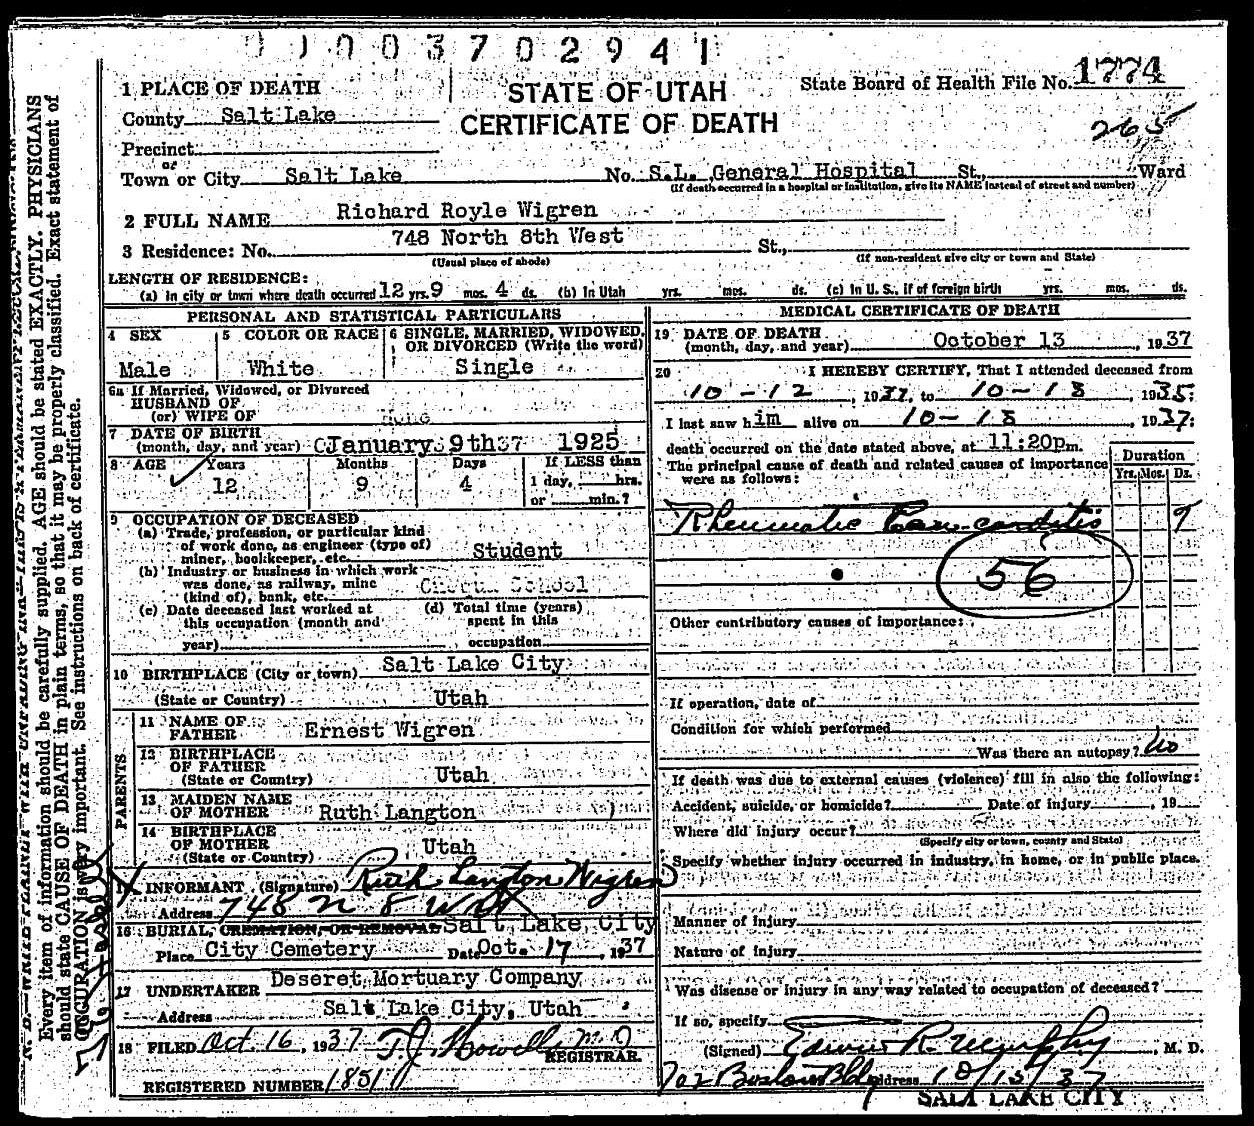 0 0 0 3 7 0 2 9 4 1
1 PLACE OF DEATH
STATE OF UTAH
CERTIFICATE OF DEATH
State Board of Health File No. 1774
265
County Salt Lake
Precinct
or
Town or City Salt Lake No. S.L. General Hospital St., Ward
(If death occurred in a hospital or institution, give its NAME instead of street and number)
2 FULL NAME Richard Royle Wigren
3 Residence: No. 748 North 8th West St.,
(Usual place of abode) (If non-resident give city or town and State)
LENGTH OF RESIDENCE:
(a) In city or town where death occurred 12 yrs. 9 mos. 4 ds. (b) In Utah yrs. mos. ds. (c) In U. S., if of foreign birth yrs. mos. ds.
PERSONAL AND STATISTICAL PARTICULARS
4 SEX Male
5 COLOR OR RACE White
6 SINGLE, MARRIED, WIDOWED, OR DIVORCED (Write the word) Single
6a If Married, Widowed, or Divorced
HUSBAND OF
(or) WIFE OF
7 DATE OF BIRTH
(month, day, and year) January 9th 1925
8 AGE Years 12 Months 9 Days 4
If LESS than
1 day, hrs.
or min.?
9 OCCUPATION OF DECEASED
(a) Trade, profession, or particular kind
of work done, as engineer (type of)
miner, bookkeeper, etc. Student
(b) Industry or business in which work
was done, as railway, mine
(kind of), bank, etc. School
(c) Date deceased last worked at
this occupation (month and
year)
(d) Total time (years)
spent in this
occupation
10 BIRTHPLACE (City or town) Salt Lake City
(State or Country) Utah
PARENTS
11 NAME OF
FATHER Ernest Wigren
12 BIRTHPLACE
OF FATHER
(State or Country) Utah
13 MAIDEN NAME
OF MOTHER Ruth Langton
14 BIRTHPLACE
OF MOTHER
(State or Country) Utah
INFORMANT (Signature) Ruth Langton Wigren
Address 748 N 8 West
16 BURIAL, CREMATION, OR REMOVAL Salt Lake City
Place City Cemetery Date Oct. 17, 1937
17 UNDERTAKER Deseret Mortuary Company
Address Salt Lake City, Utah
18 FILED Oct. 16, 1937 T.J. Howells M.D
REGISTRAR.
REGISTERED NUMBER 1851
MEDICAL CERTIFICATE OF DEATH
19 DATE OF DEATH
(month, day, and year) October 13, 1937
20 I HEREBY CERTIFY, That I attended deceased from
10-12, 1937, to 10-13 1935;
I last saw him alive on 10-13, 1937;
death occurred on the date stated above, at 11:20pm.
The principal cause of death and related causes of importance
were as follows:
Duration
Yrs. Mos. Ds.
Rheumatic
56
Other contributory causes of importance:
If operation, date of
Condition for which performed
Was there an autopsy? No
If death was due to external causes (violence) fill in also the following:
Accident, suicide, or homicide? Date of injury, 19
Where did injury occur?
(Specify city or town, county and State)
Specify whether injury occurred in industry, in home, or in public place.
Manner of injury
Nature of injury
Was disease or injury in any way related to occupation of deceased?
If so, specify
(Signed) Edwin R. Murphy, M. D.
702 Boston Bldg Address 10/15/37
SALT LAKE CITY
Every item of information should be carefully supplied. AGE should be stated EXACTLY. PHYSICIANS
should state CAUSE OF DEATH in plain terms, so that it may be properly classified. Exact statement of
OCCUPATION is very important. See instructions on back of certificate.